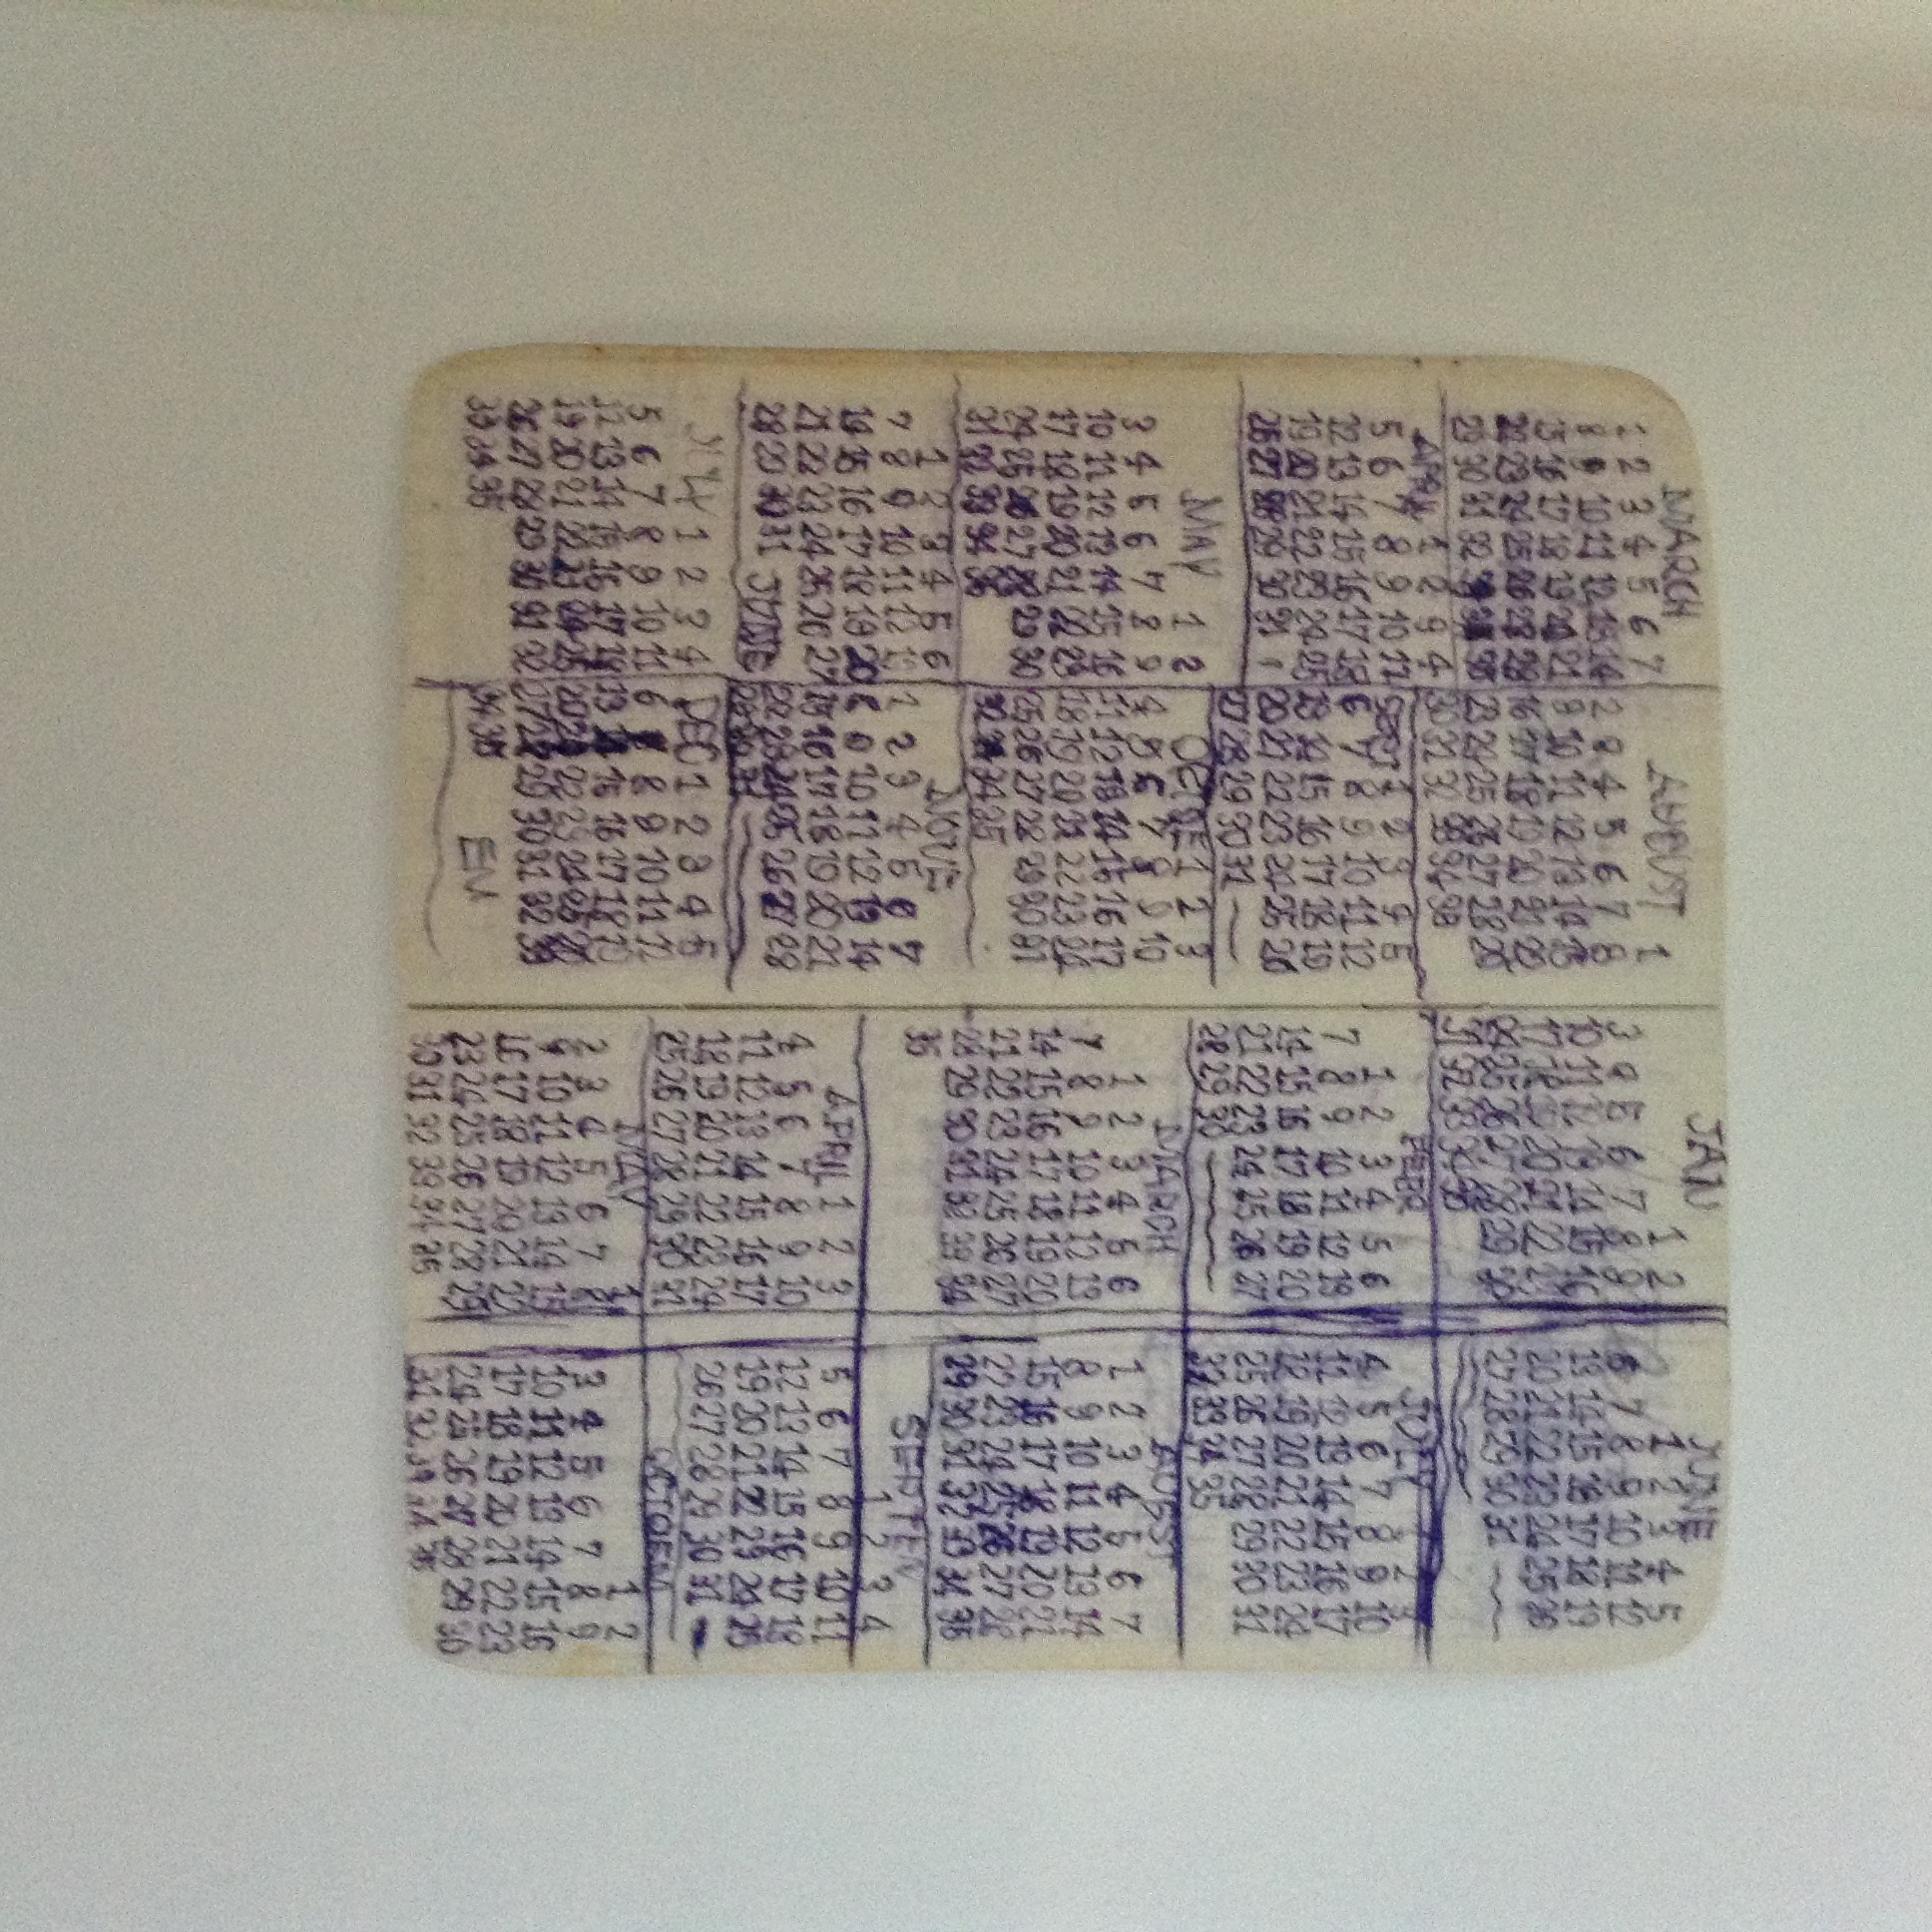 MARCH
1 2 3 4 5 6 7
8 9 10 11 12 13 14
15 16 17 18 19 20 21
22 23 24 25 26 27 28
29 30 31 32 33 34 35
APRIL 1 2 3 4
5 6 7 8 9 10 11
12 13 14 15 16 17 18
19 20 21 22 23 24 25
26 27 28 29 30 31
MAY 1 2
3 4 5 6 7 8 9
10 11 12 13 14 15 16
17 18 19 20 21 22 23
24 25 26 27 28 29 30
31 32 33 34 35
1 2 3 4 5 6
7 8 9 10 11 12 13
14 15 16 17 18 19 20
21 22 23 24 25 26 27
28 29 30 31 JUNE
1 2 3 4
5 6 7 8 9 10 11
12 13 14 15 16 17 18
19 20 21 22 23 24 25
26 27 28 29 30 31 32
33 34 35
AUGUST 1
2 3 4 5 6 7 8
9 10 11 12 13 14 15
16 17 18 19 20 21 22
23 24 25 26 27 28 29
30 31 32 33 34 35
SEPT 1 2 3 4 5
6 7 8 9 10 11 12
13 14 15 16 17 18 19
20 21 22 23 24 25 26
27 28 29 30 31
1 2 3
4 5 6 7 8 9 10
11 12 13 14 15 16 17
18 19 20 21 22 23 24
25 26 27 28 29 30 31
32 33 34 35
1 2 3 4 5 6 7
8 9 10 11 12 13 14
15 16 17 18 19 20 21
22 23 24 25 26 27 28
29 30 31
DEC 1 2 3 4 5
6 7 8 9 10 11 12
13 14 15 16 17 18 19
20 21 22 23 24 25 26
27 28 29 30 31 32 33
34 35
JAN 1 2
3 4 5 6 7 8 9
10 11 12 13 14 15 16
17 18 19 20 21 22 23
24 25 26 27 28 29 30
31 32 33 34 35
FEBR
1 2 3 4 5 6
7 8 9 10 11 12 13
14 15 16 17 18 19 20
21 22 23 24 25 26 27
28 29 30
MARCH
1 2 3 4 5 6
7 8 9 10 11 12 13
14 15 16 17 18 19 20
21 22 23 24 25 26 27
28 29 30 31 32 33 34
35
APRIL 1 2 3
4 5 6 7 8 9 10
11 12 13 14 15 16 17
18 19 20 21 22 23 24
25 26 27 28 29 30 31
MAY 1
2 3 4 5 6 7 8
9 10 11 12 13 14 15
16 17 18 19 20 21 22
23 24 25 26 27 28 29
30 31 32 33 34 35
JUNE
1 2 3 4 5
6 7 8 9 10 11 12
13 14 15 16 17 18 19
20 21 22 23 24 25 26
27 28 29 30 31
JULY 1 2 3
4 5 6 7 8 9 10
11 12 13 14 15 16 17
18 19 20 21 22 23 24
25 26 27 28 29 30 31
32 33 34 35
AUGST
1 2 3 4 5 6 7
8 9 10 11 12 13 14
15 16 17 18 19 20 21
22 23 24 25 26 27 28
29 30 31 32 33 34 35
SEPTEN
1 2 3 4
5 6 7 8 9 10 11
12 13 14 15 16 17 18
19 20 21 22 23 24 25
26 27 28 29 30 31
OCTOBER
1 2
3 4 5 6 7 8 9
10 11 12 13 14 15 16
17 18 19 20 21 22 23
24 25 26 27 28 29 30
31 32 33 34 35